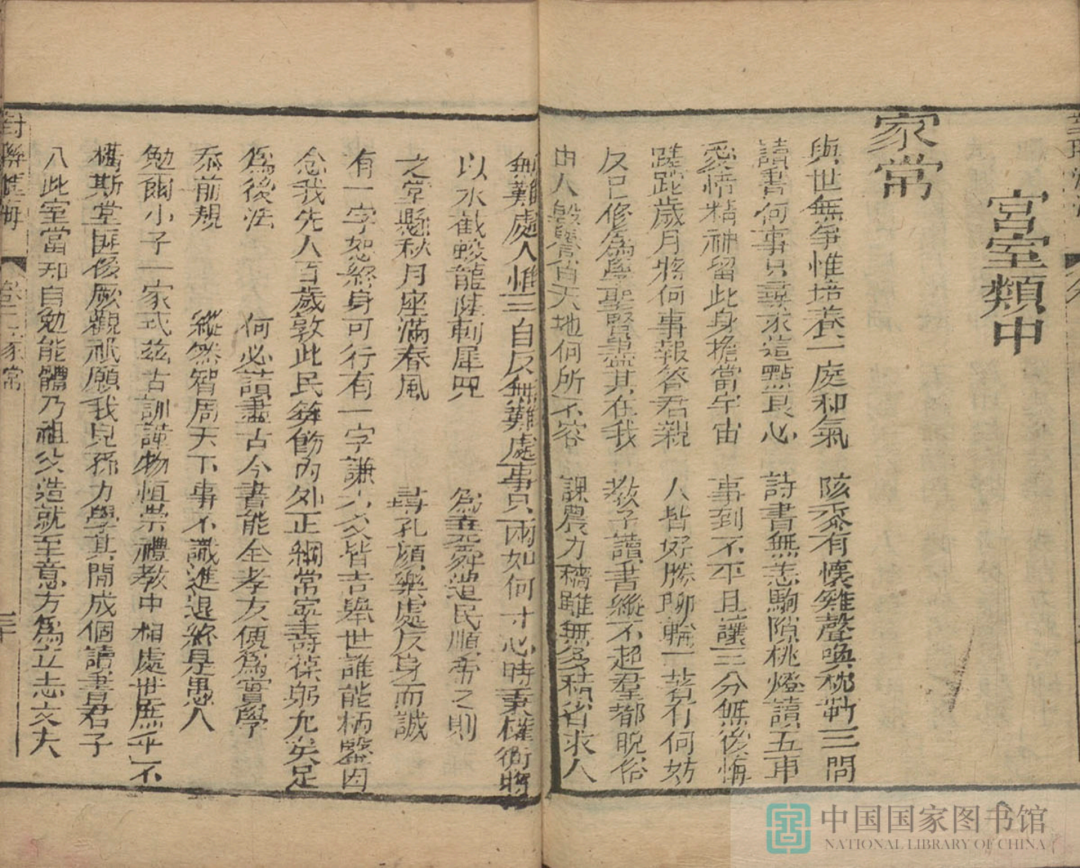 宮室類中
家常
與世無爭惟培養一庭和氣 陔黍有懷雞聲喚枕龄三問
讀書何事只尋求這點良心 詩書無恙駒隙桃燈讀五車
愛惜精神留此身擔當宇宙 事到不平且讓三分無後悔
蹉跎歲月將何事報答君親 人皆好勝聊輸一著有何妨
反己修為學聖賢盡其在我 教子讀書縱不超羣都脫俗
由人毀譽首天地何所不容 課農力穡雖無多積省求人
無難處人惟三自反無難處事只兩如何寸心時秉權衡將
以水截蛟龍陸剸犀兕 為堯舜造民順帝之則
之堂懸秋月座滿春風 尋孔顏樂處反身而誠
有一字恕終身可行有一字謙六爻皆吉舉世誰能柄鑿因
念我先人百歲敦此民彝飭內外正綱常家壽葆躬允矣足
為後法 何必讀盡古今書能全孝友便為實學
忝前規 縱然智周天下事不識進退終是愚人
勉爾小子一家式茲古訓謹物恒崇禮教中相處世庶乎不
螽斯堂匪後厥觀祇願我兒孫力學其間成個讀書君子
入此室當知自勉能體乃祖父造就至意方為立志丈夫
對聯匯海
卷三
家常
中国国家图书馆
NATIONAL LIBRARY OF CHINA